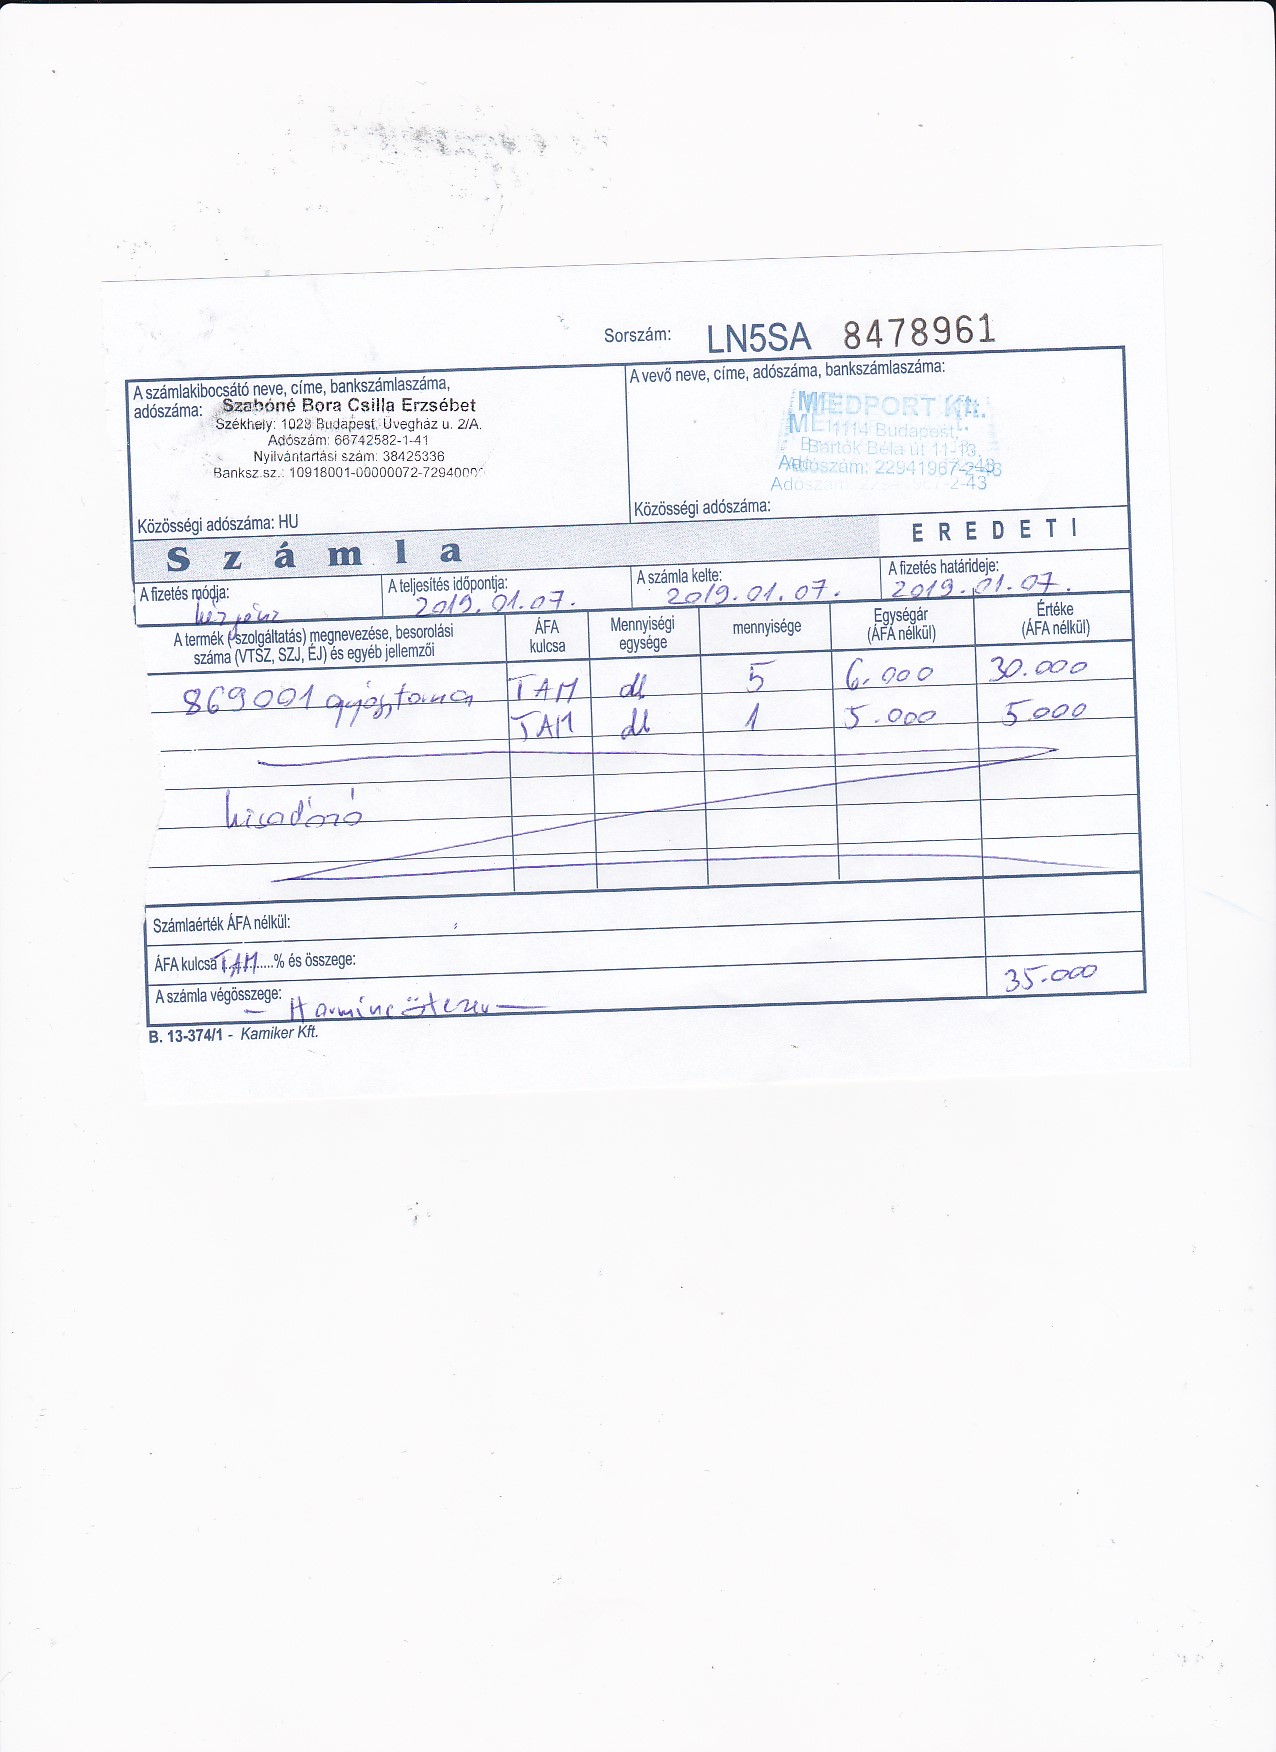 Sorszám: LN5SA 8478961
A számlakibocsátó neve, címe, bankszámlaszáma,
adószáma: Szabóné Bora Csilla Erzsébet
Székhely: 1028 Budapest, Üvegház u. 2/A.
Adószám: 66742582-1-41
Nyilvántartási szám: 38425336
Banksz.sz.: 10918001-00000072-7294000
Közösségi adószáma: HU
A vevő neve, címe, adószáma, bankszámlaszáma:
MEDPORT Kft.
1114 Budapest,
Bartók Béla út 11-13.
Adószám: 22941967-2-43
Közösségi adószáma:
Számla
EREDETI
A fizetés módja: készpénz
A teljesítés időpontja: 2019.01.07.
A számla kelte: 2019.01.07.
A fizetés határideje: 2019.01.07.
A termék (-szolgáltatás) megnevezése, besorolási
száma (VTSZ, SZJ, ÉJ) és egyéb jellemzői
ÁFA kulcsa
Mennyiségi egysége
mennyisége
Egységár (ÁFA nélkül)
Értéke (ÁFA nélkül)
869001 gyógytorna TAM db 5 6.000 30.000
TAM db 1 5.000 5000
kisadózó
Számlaérték ÁFA nélkül:
ÁFA kulcsa TAM.....% és összege:
A számla végösszege: — Harmincötezer — 35.000
B. 13-374/1 - Kamiker Kft.